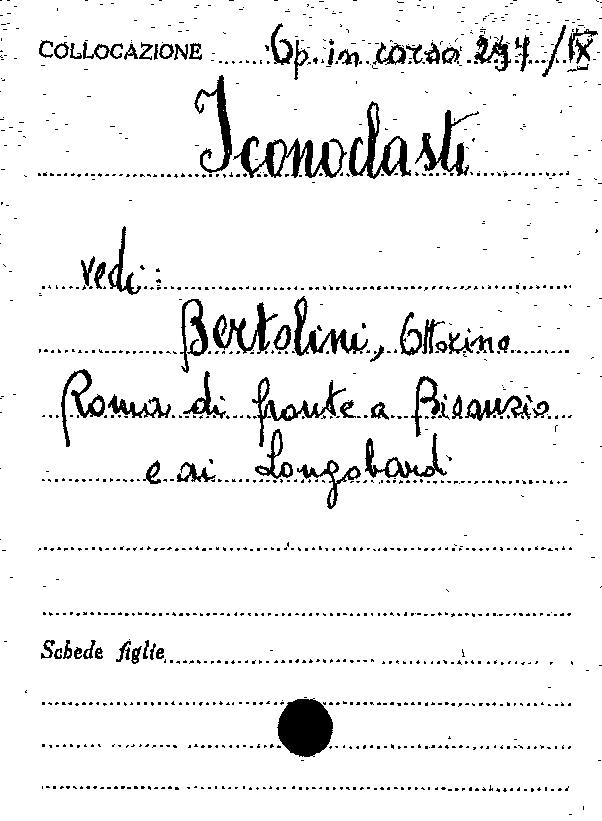 COLLOCAZIONE Op. in corso 297/IX
Iconoclasti
vedi:
Bertolini, Ottorino
Roma di fronte a Bisanzio
e ai Longobardi
Schede figlie